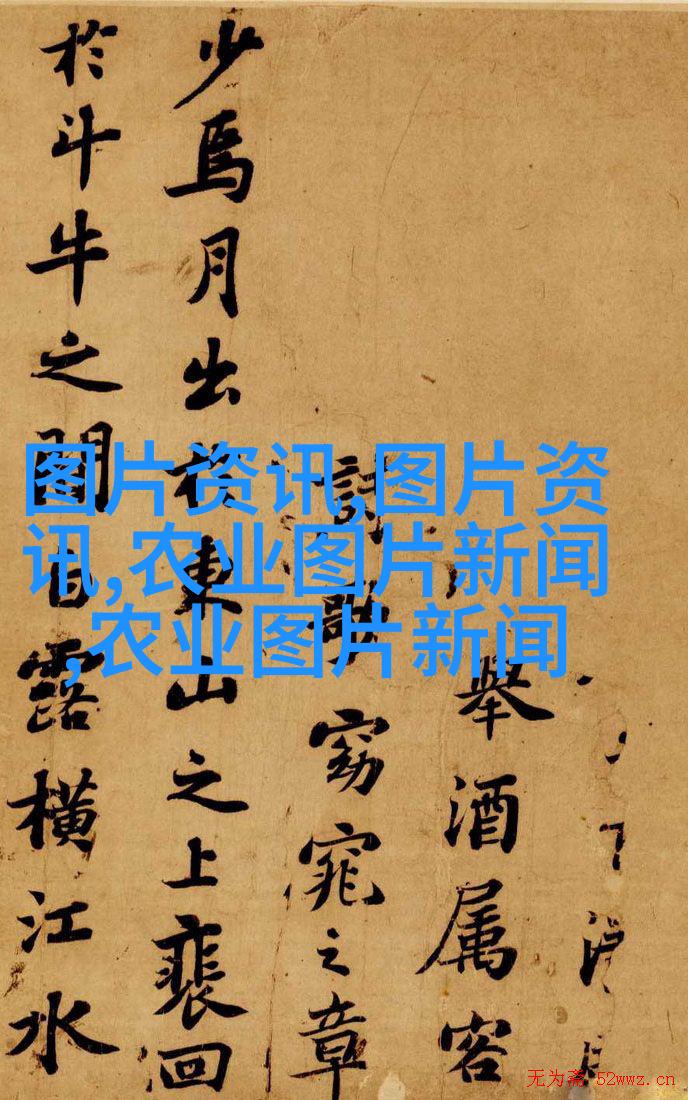 舉酒属客
詩歌窈窕之章
少焉月出於東山之上裴回
於斗牛之間白露橫江水
图片资讯,图片资
讯,农业图片新闻
,农业图片新闻
无为斋 52wwz.cn